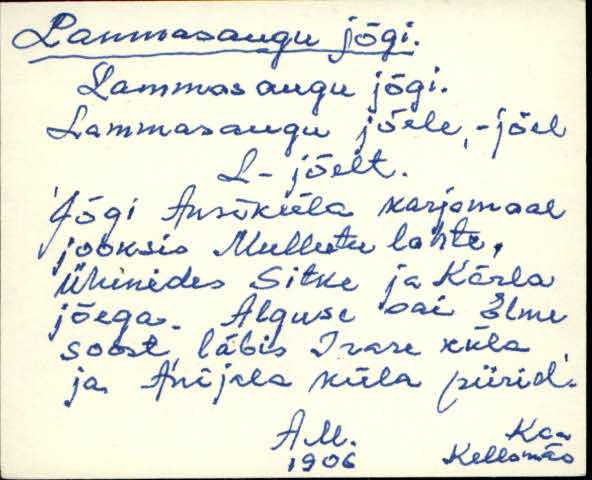 Lammasaugu jõgi.
Lammasaugu jõgi.
Lammasaugu jõele, -jõel
L- jõelt.
Jõgi Ansiküla karjamaal
jooksis Mullutu lahte,
ühinedes Sitke ja Kärla
jõega. Alguse sai Õlme
soost, läbis Irase küla
ja Anijala küla piirid.
A.M.
1906
Kaa
Kellamäe